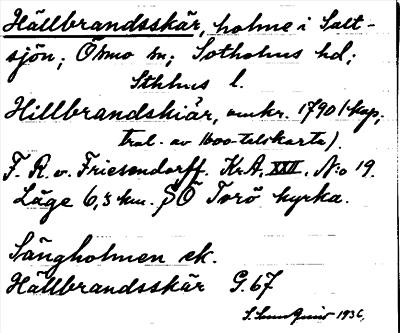 Hällbrandsskär, holme i Salt-
sjön; Ösmo sn; Sotholms hd;
Sthlms l.
Hillbrandskiär, omkr. 1790 (kop;
trol. av 1600-talskarta).
F. R. v. Friesendorff. Kr.A. XXII. N:o 19.
Läge 6,3 km. SÖ Torö kyrka.
Sängholmen ek.
Hällbrandsskär G. 67
1936.